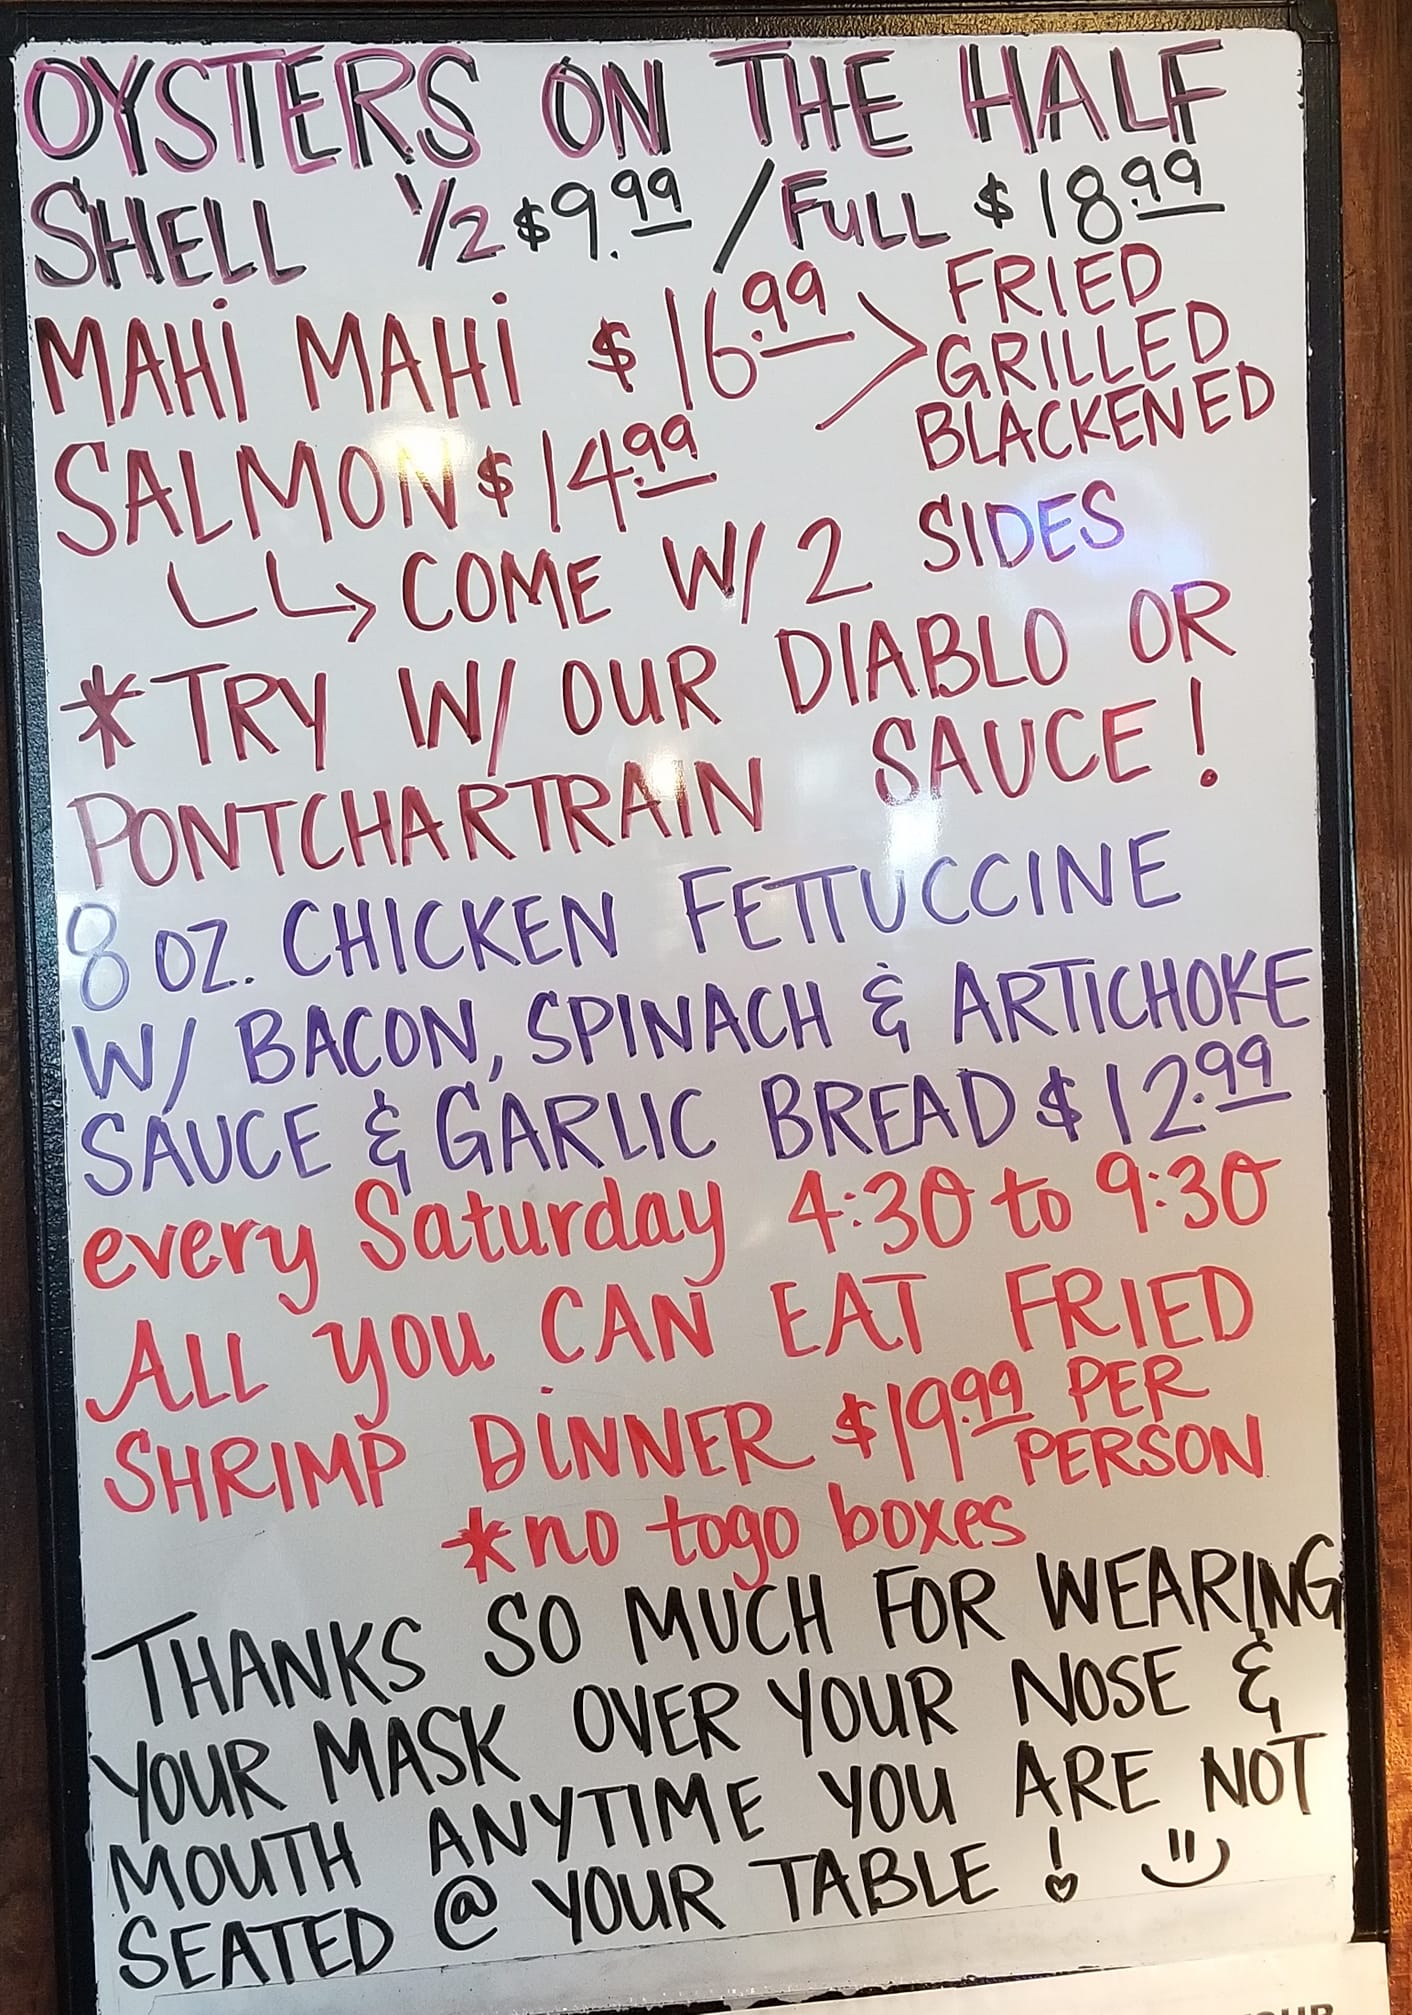 OYSTERS ON THE HALF
SHELL 1/2 $9.99 / FULL $18.99
MAHI MAHI $16.99 > FRIED
GRILLED
BLACKENED
SALMON $14.99
COME W/ 2 SIDES
*TRY W/ OUR DIABLO OR
PONTCHARTRAIN SAUCE!
8 OZ. CHICKEN FETTUCCINE
W/ BACON, SPINACH & ARTICHOKE
SAUCE & GARLIC BREAD $12.99
every Saturday 4:30 to 9:30
ALL YOU CAN EAT FRIED
SHRIMP DINNER $19.99 PER
PERSON
*no togo boxes
THANKS SO MUCH FOR WEARING
YOUR MASK OVER YOUR NOSE &
MOUTH ANYTIME YOU ARE NOT
SEATED @ YOUR TABLE!